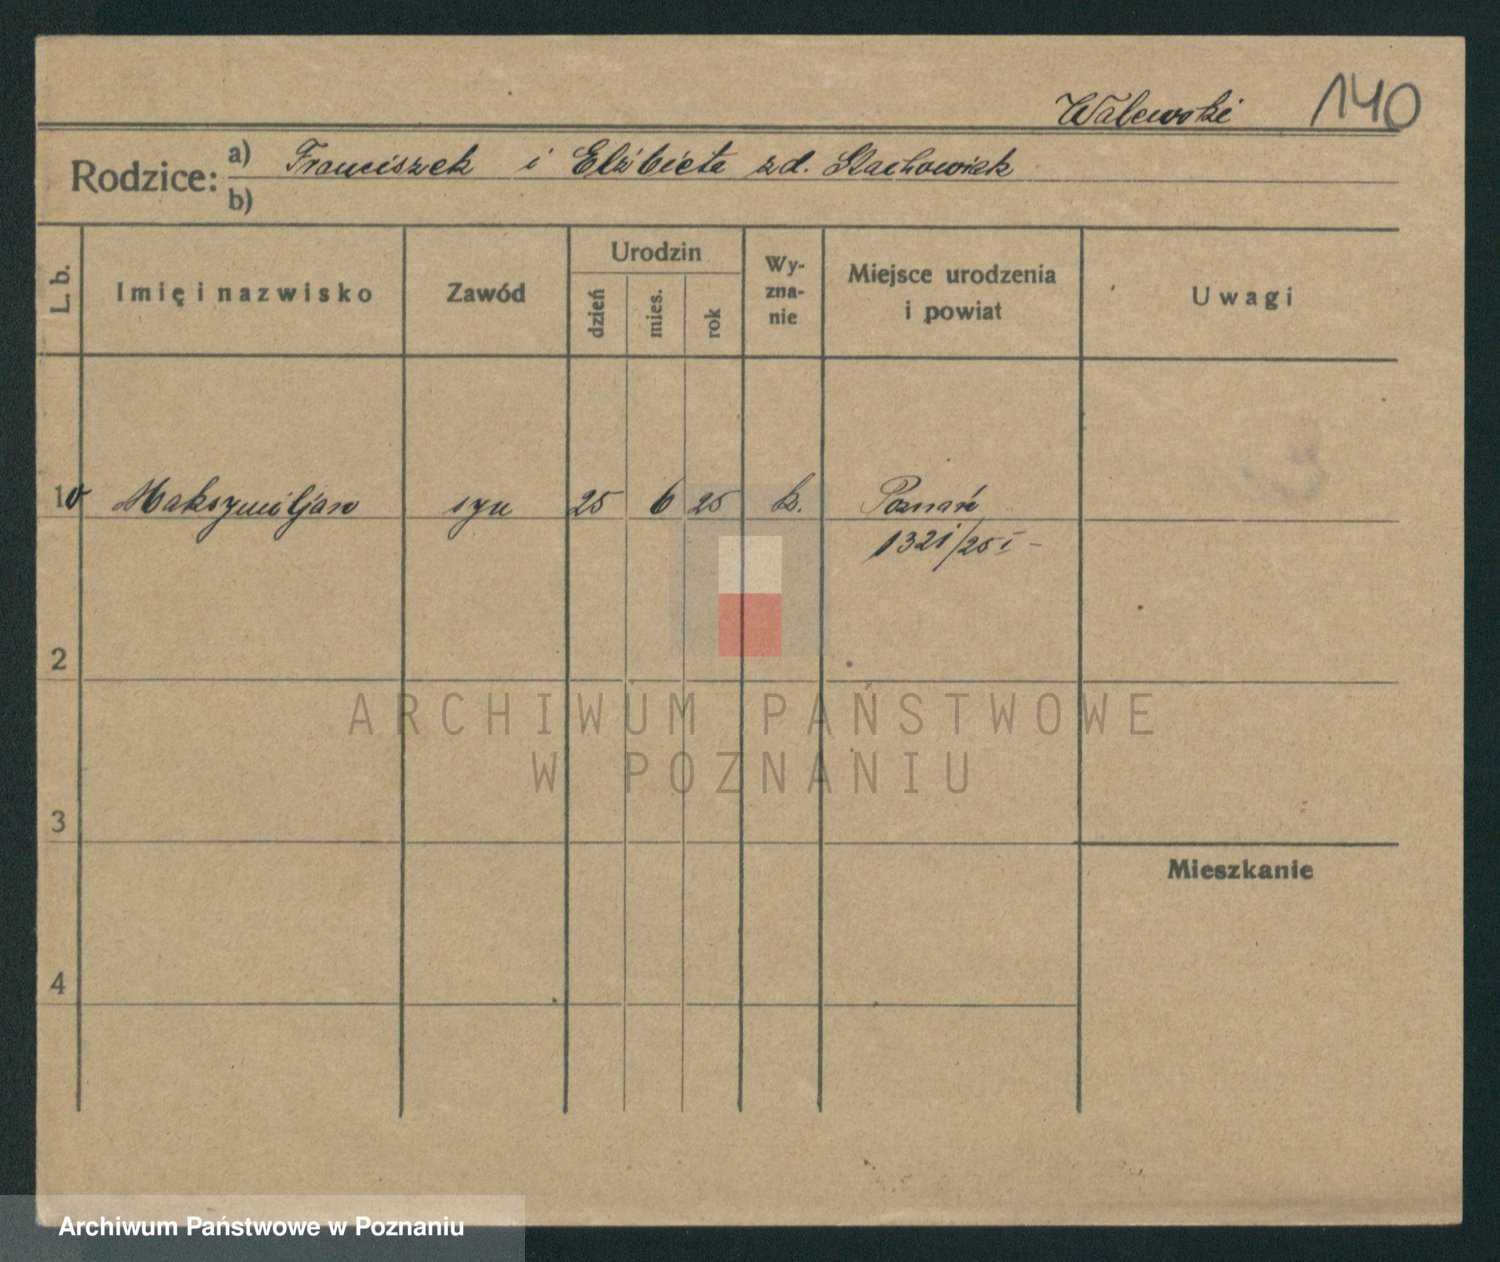 Walewski 140
Rodzice: a) Franciszek i Elżbieta zd. Stachowiak
b)
L. b. Imię i nazwisko Zawód Urodzin dzień mies. rok Wyzna-nie Miejsce urodzenia i powiat Uwagi
1 Maksymiljan syn 25 6 25 k. Poznań
1321/25 I -
2
ARCHIWUM PAŃSTWOWE
W POZNANIU
3
Mieszkanie
4
Archiwum Państwowe w Poznaniu